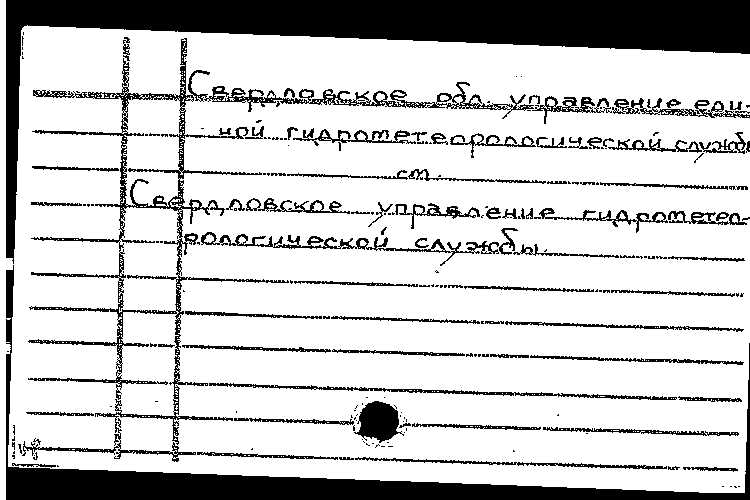 Свердловское обл. управление еди-
ной гидрометеорологической службы
см.
Свердловское управление гидрометео-
рологической службы.